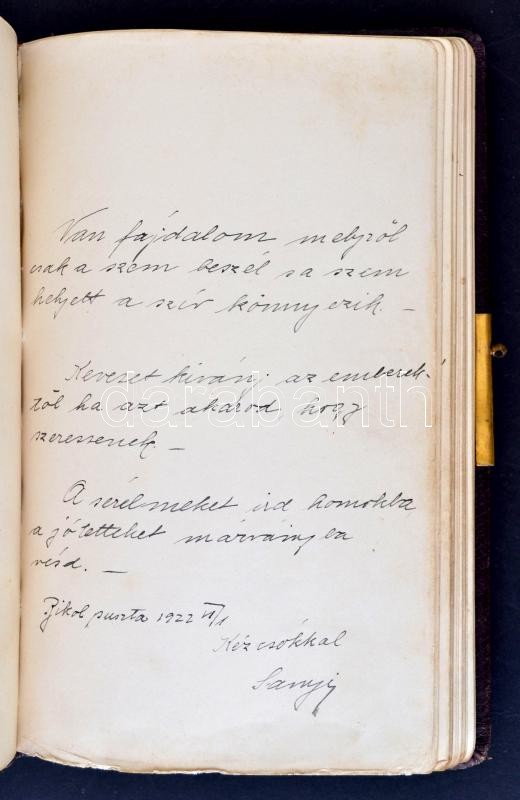 Van fájdalom melyről
csak a szem beszél s a szem
helyett a szív könnyezik. —
Keveset kívánj az emberek-
től ha azt akarod hogy
szeressenek. —
A sérelmeket írd homokba
a jótetteket márványba
vésd. —
puszta 1922 VI/1
Kézcsókkal
darabanth